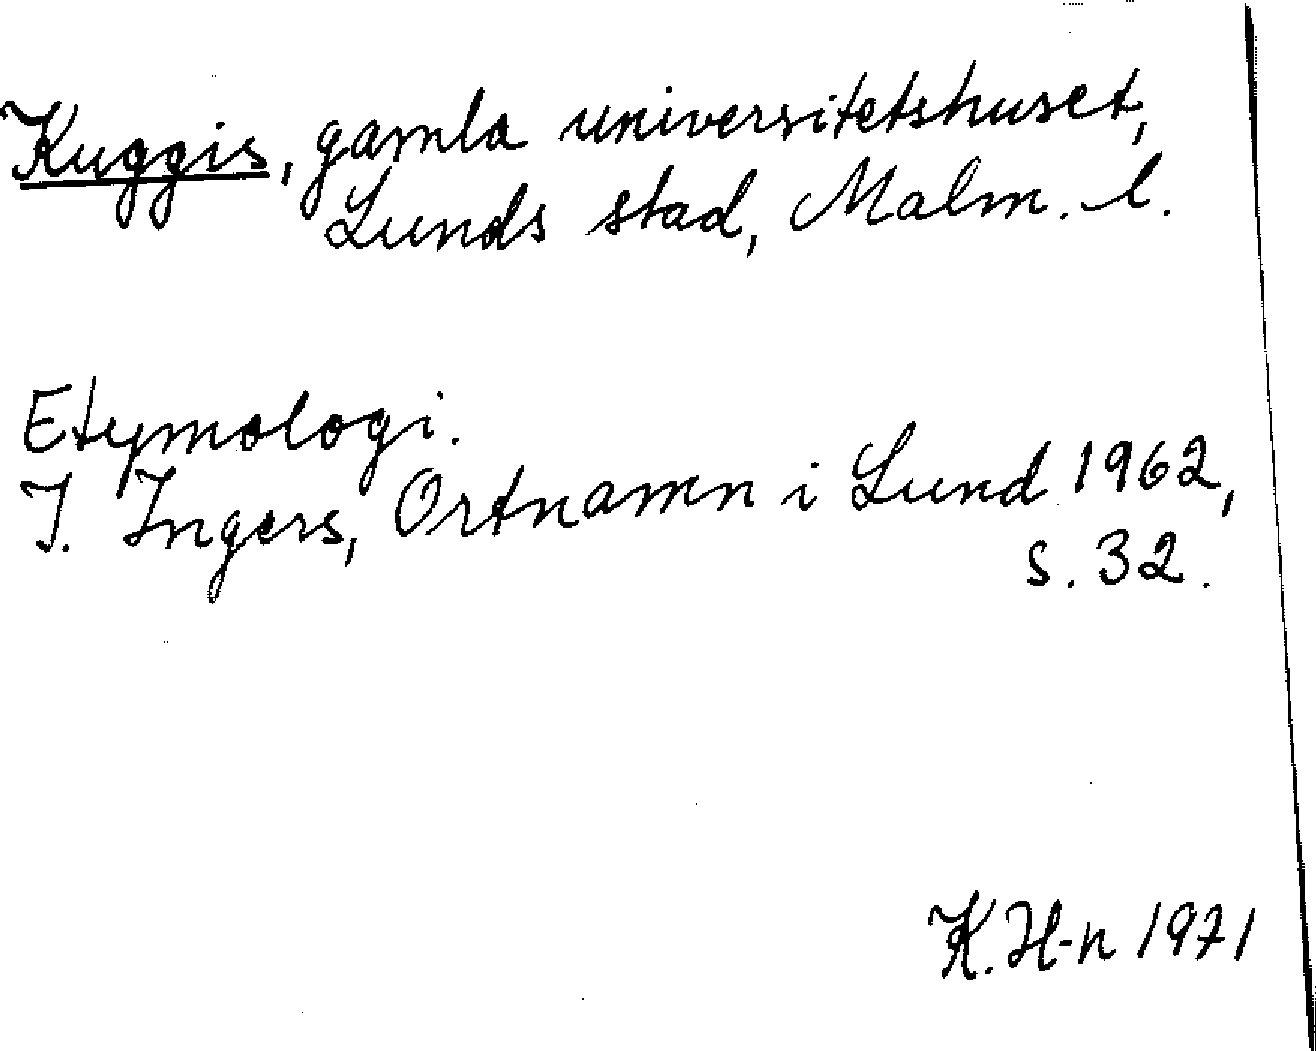 Kuggis, gamla universitetshuset,
Lunds stad, Malm. l.
Etymologi.
I. Ingers, Ortnamn i Lund 1962,
s. 32.
K. H-n 1971